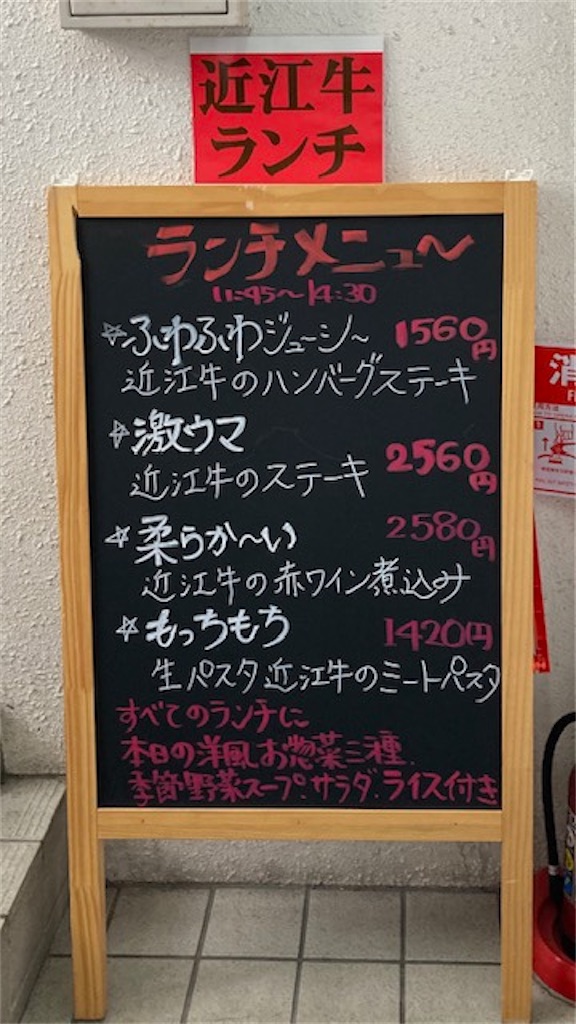 近江牛
ランチ
ランチメニュ〜
11:45〜14:30
☆ふわふわジューシ〜 1560円
近江牛のハンバーグステーキ
☆激ウマ
近江牛のステーキ 2560円
☆柔らか〜い 2580円
近江牛の赤ワイン煮込み
☆もっちもち 1420円
生パスタ近江牛のミートパスタ
すべてのランチに
本日の洋風お惣菜三種.
季節野菜スープ.サラダ.ライス付き
消